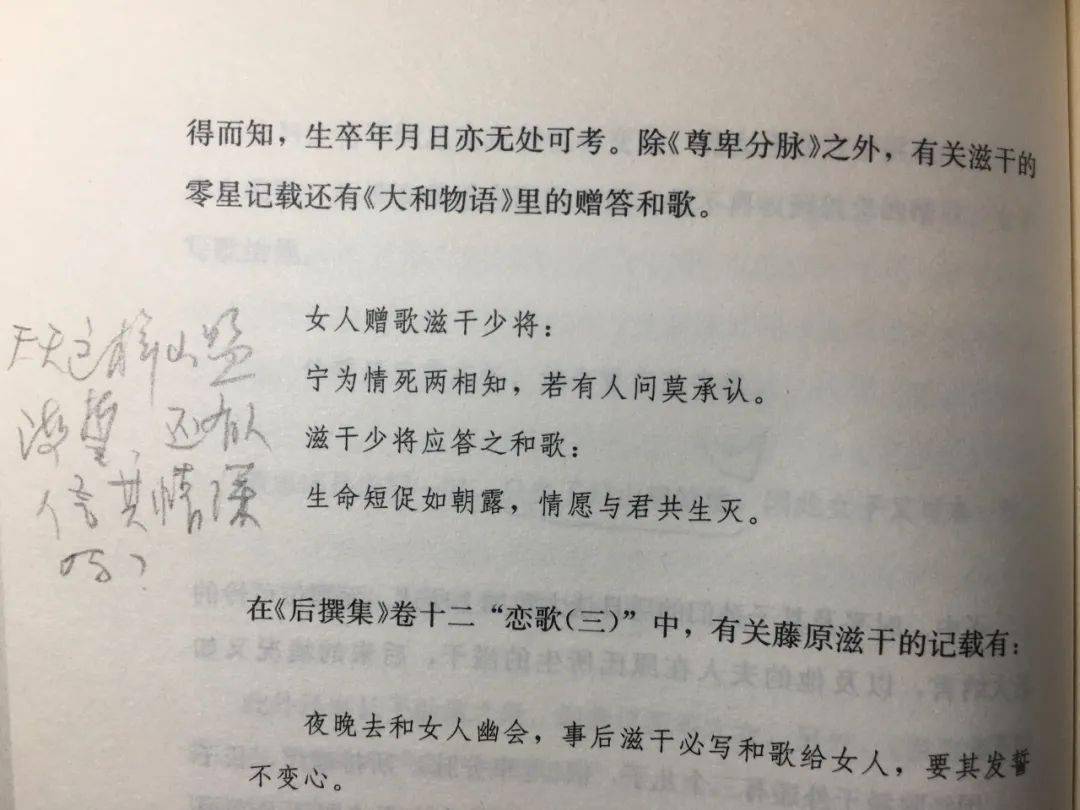 得而知，生卒年月日亦无处可考。除《尊卑分脉》之外，有关滋干的
零星记载还有《大和物语》里的赠答和歌。
女人赠歌滋干少将：
宁为情死两相知，若有人问莫承认。
滋干少将应答之和歌：
生命短促如朝露，情愿与君共生灭。
天天这样山盟
海誓，还有人
信其情深
吗？
在《后撰集》卷十二“恋歌（三）”中，有关藤原滋干的记载有：
夜晚去和女人幽会，事后滋干必写和歌给女人，要其发誓
不变心。